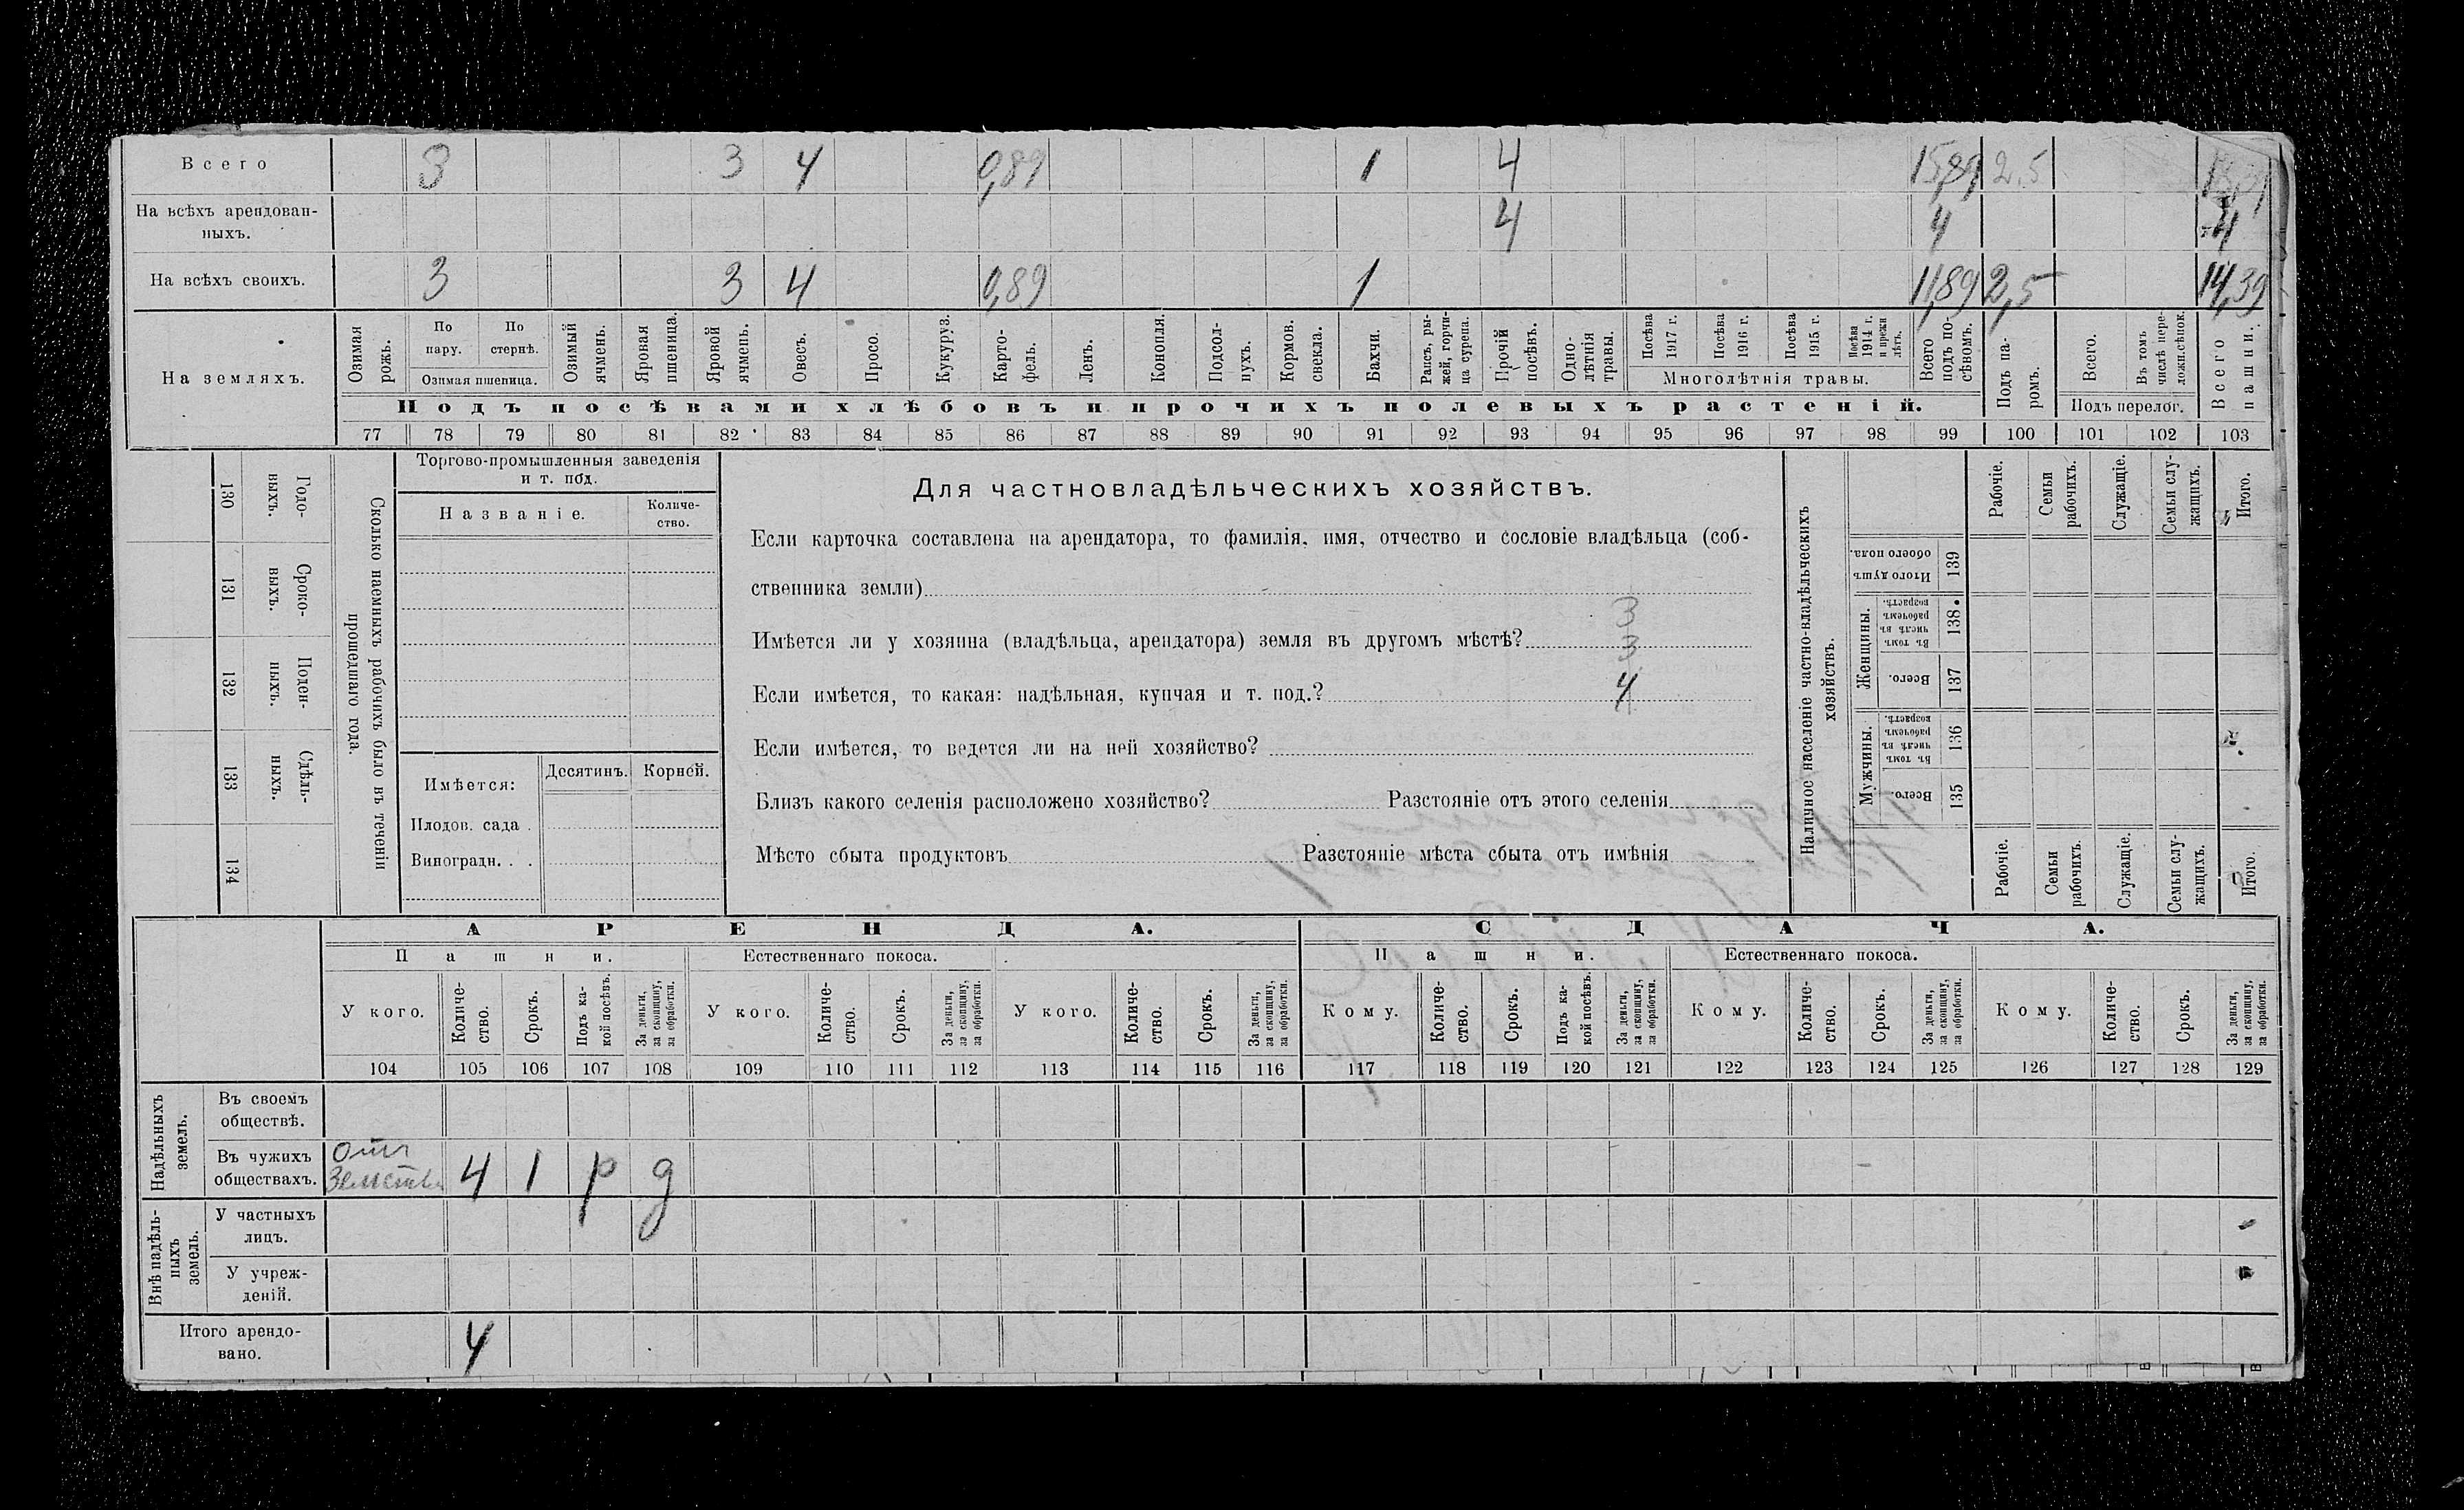 Всего 3 3 4 0,89 1 4 15,89 2,5
На всѣхъ арендован-
ныхъ. 4 4 4
На всѣхъ своихъ. 3 3 4 0,89 1 11,89 2,5 14,39
На земляхъ.
Озимая рожь.
По пару.
По стернѣ.
Озимая пшеница.
Озимый ячмень.
Яровая пшеница.
Яровой ячмень.
Овесъ.
Просо.
Кукуруз.
Карто-
фель.
Ленъ.
Конопля.
Подсол-
нухъ.
Кормов.
свекла.
Бахчи.
Рапсъ, ры-
жей, горчи-
ца сурепа.
Прочій посѣвъ.
Одно-
лѣтнія травы.
Посѣва 1917 г.
Посѣва 1916 г.
Посѣва 1915 г.
Посѣва 1914 г. и прежн лѣтъ.
Многолѣтнія травы.
Всего подъ по-
сѣвомъ.
Подъ па-
ромъ.
Всего.
Въ томъ числѣ пере-
ложн.сѣнок.
Подъ перелог.
Всего пашни.
Подъ посѣвами хлѣбовъ и прочихъ полевыхъ растеній.
77 78 79 80 81 82 83 84 85 86 87 88 89 90 91 92 93 94 95 96 97 98 99 100 101 102 103
130 Годо-
выхъ.
131 Сроко-
выхъ.
132 Поден-
ныхъ.
133 Сдѣль-
ныхъ.
134
Сколько наемныхъ рабочихъ было въ теченіи
прошедшаго года.
Торгово-промышленныя заведенія
и т. под.
Названіе.
Количе-
ство.
Имѣется: Десятинъ. Корней.
Плодов. сада .
Виноградн. . .
Для частновладѣльческихъ хозяйствъ.
Если карточка составлена на арендатора, то фамилія, имя, отчество и сословіе владѣльца (соб-
ственника земли)
3
Имѣется ли у хозяина (владѣльца, арендатора) земля въ другомъ мѣстѣ? 3
Если имѣется, то какая: надѣльная, купчая и т. под.? 4
Если имѣется, то ведется ли на ней хозяйство?
Близъ какого селенія расположено хозяйство? Разстояніе отъ этого селенія
Мѣсто сбыта продуктовъ Разстояніе мѣста сбыта отъ имѣнія
Наличное населеніе частно-владѣльческихъ
хозяйствъ.
Рабочіе.
Семьи рабочихъ.
Служащіе.
Семьи слу-
жащихъ.
Итого.
Итого душъ обоего пола. 139
Женщины.
Въ томъ числѣ въ рабочемъ возрастѣ. 138
Всего. 137
Мужчины.
Въ томъ числѣ въ рабочемъ возрастѣ. 136
Всего. 135
Рабочіе.
Семьи рабочихъ.
Служащіе.
Семьи слу-
жащихъ.
Итого.
АРЕНДА. СДАЧА.
Пашни. Естественнаго покоса. Пашни. Естественнаго покоса.
У кого.
Количе-
ство.
Срокъ.
Подъ ка-
кой посѣвъ.
За деньги,
за скопщину,
за обработки.
У кого.
Количе-
ство.
Срокъ.
За деньги,
за скопщину,
за обработки.
У кого.
Количе-
ство.
Срокъ.
За деньги,
за скопщину,
за обработки.
Кому.
Количе-
ство.
Срокъ.
Подъ ка-
кой посѣвъ.
За деньги,
за скопщину,
за обработки.
Кому.
Количе-
ство.
Срокъ.
За деньги,
за скопщину,
за обработки.
Кому.
Количе-
ство.
Срокъ.
За деньги,
за скопщину,
за обработки.
104 105 106 107 108 109 110 111 112 113 114 115 116 117 118 119 120 121 122 123 124 125 126 127 128 129
Надѣльныхъ
земель.
Въ своемъ
обществѣ.
Въ чужихъ
обществахъ. 4 1 р д
Внѣ надѣль-
ныхъ
земель.
У частныхъ
лицъ.
У учреж-
деній.
Итого арендо-
вано. 4